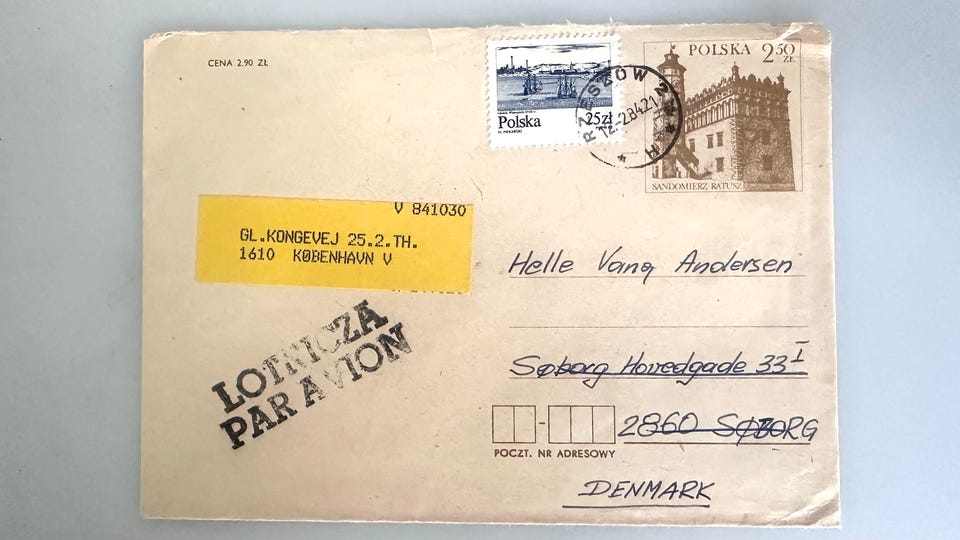 CENA 2.90 ZŁ
Polska
25zł
RZESZÓW 2
12-2.84.21
POLSKA 250 ZŁ
SANDOMIERZ RATUSZ
V 841030
GL.KONGEVEJ 25.2.TH.
1610 KØBENHAVN V
LOTNICZA
PAR AVION
Helle Vang Andersen
Søborg Hovedgade 33 I
2860 SØBORG
POCZT. NR ADRESOWY
DENMARK